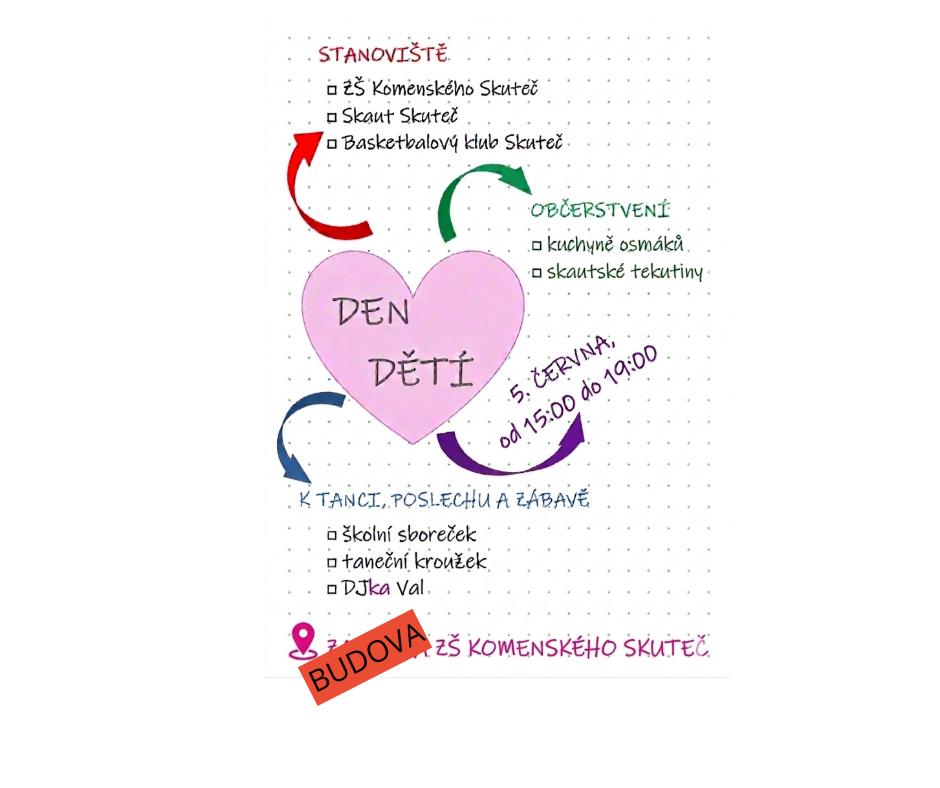 STANOVIŠTĚ
ZŠ Komenského Skuteč
Skaut Skuteč
Basketbalový klub Skuteč
OBČERSTVENÍ
kuchyně osmáků
skautské tekutiny
DEN
DĚTÍ
5. ČERVNA,
od 15:00 do 19:00
K TANCI, POSLECHU A ZÁBAVĚ
školní sboreček
taneční kroužek
DJka Val
BUDOVA ZŠ KOMENSKÉHO SKUTEČ